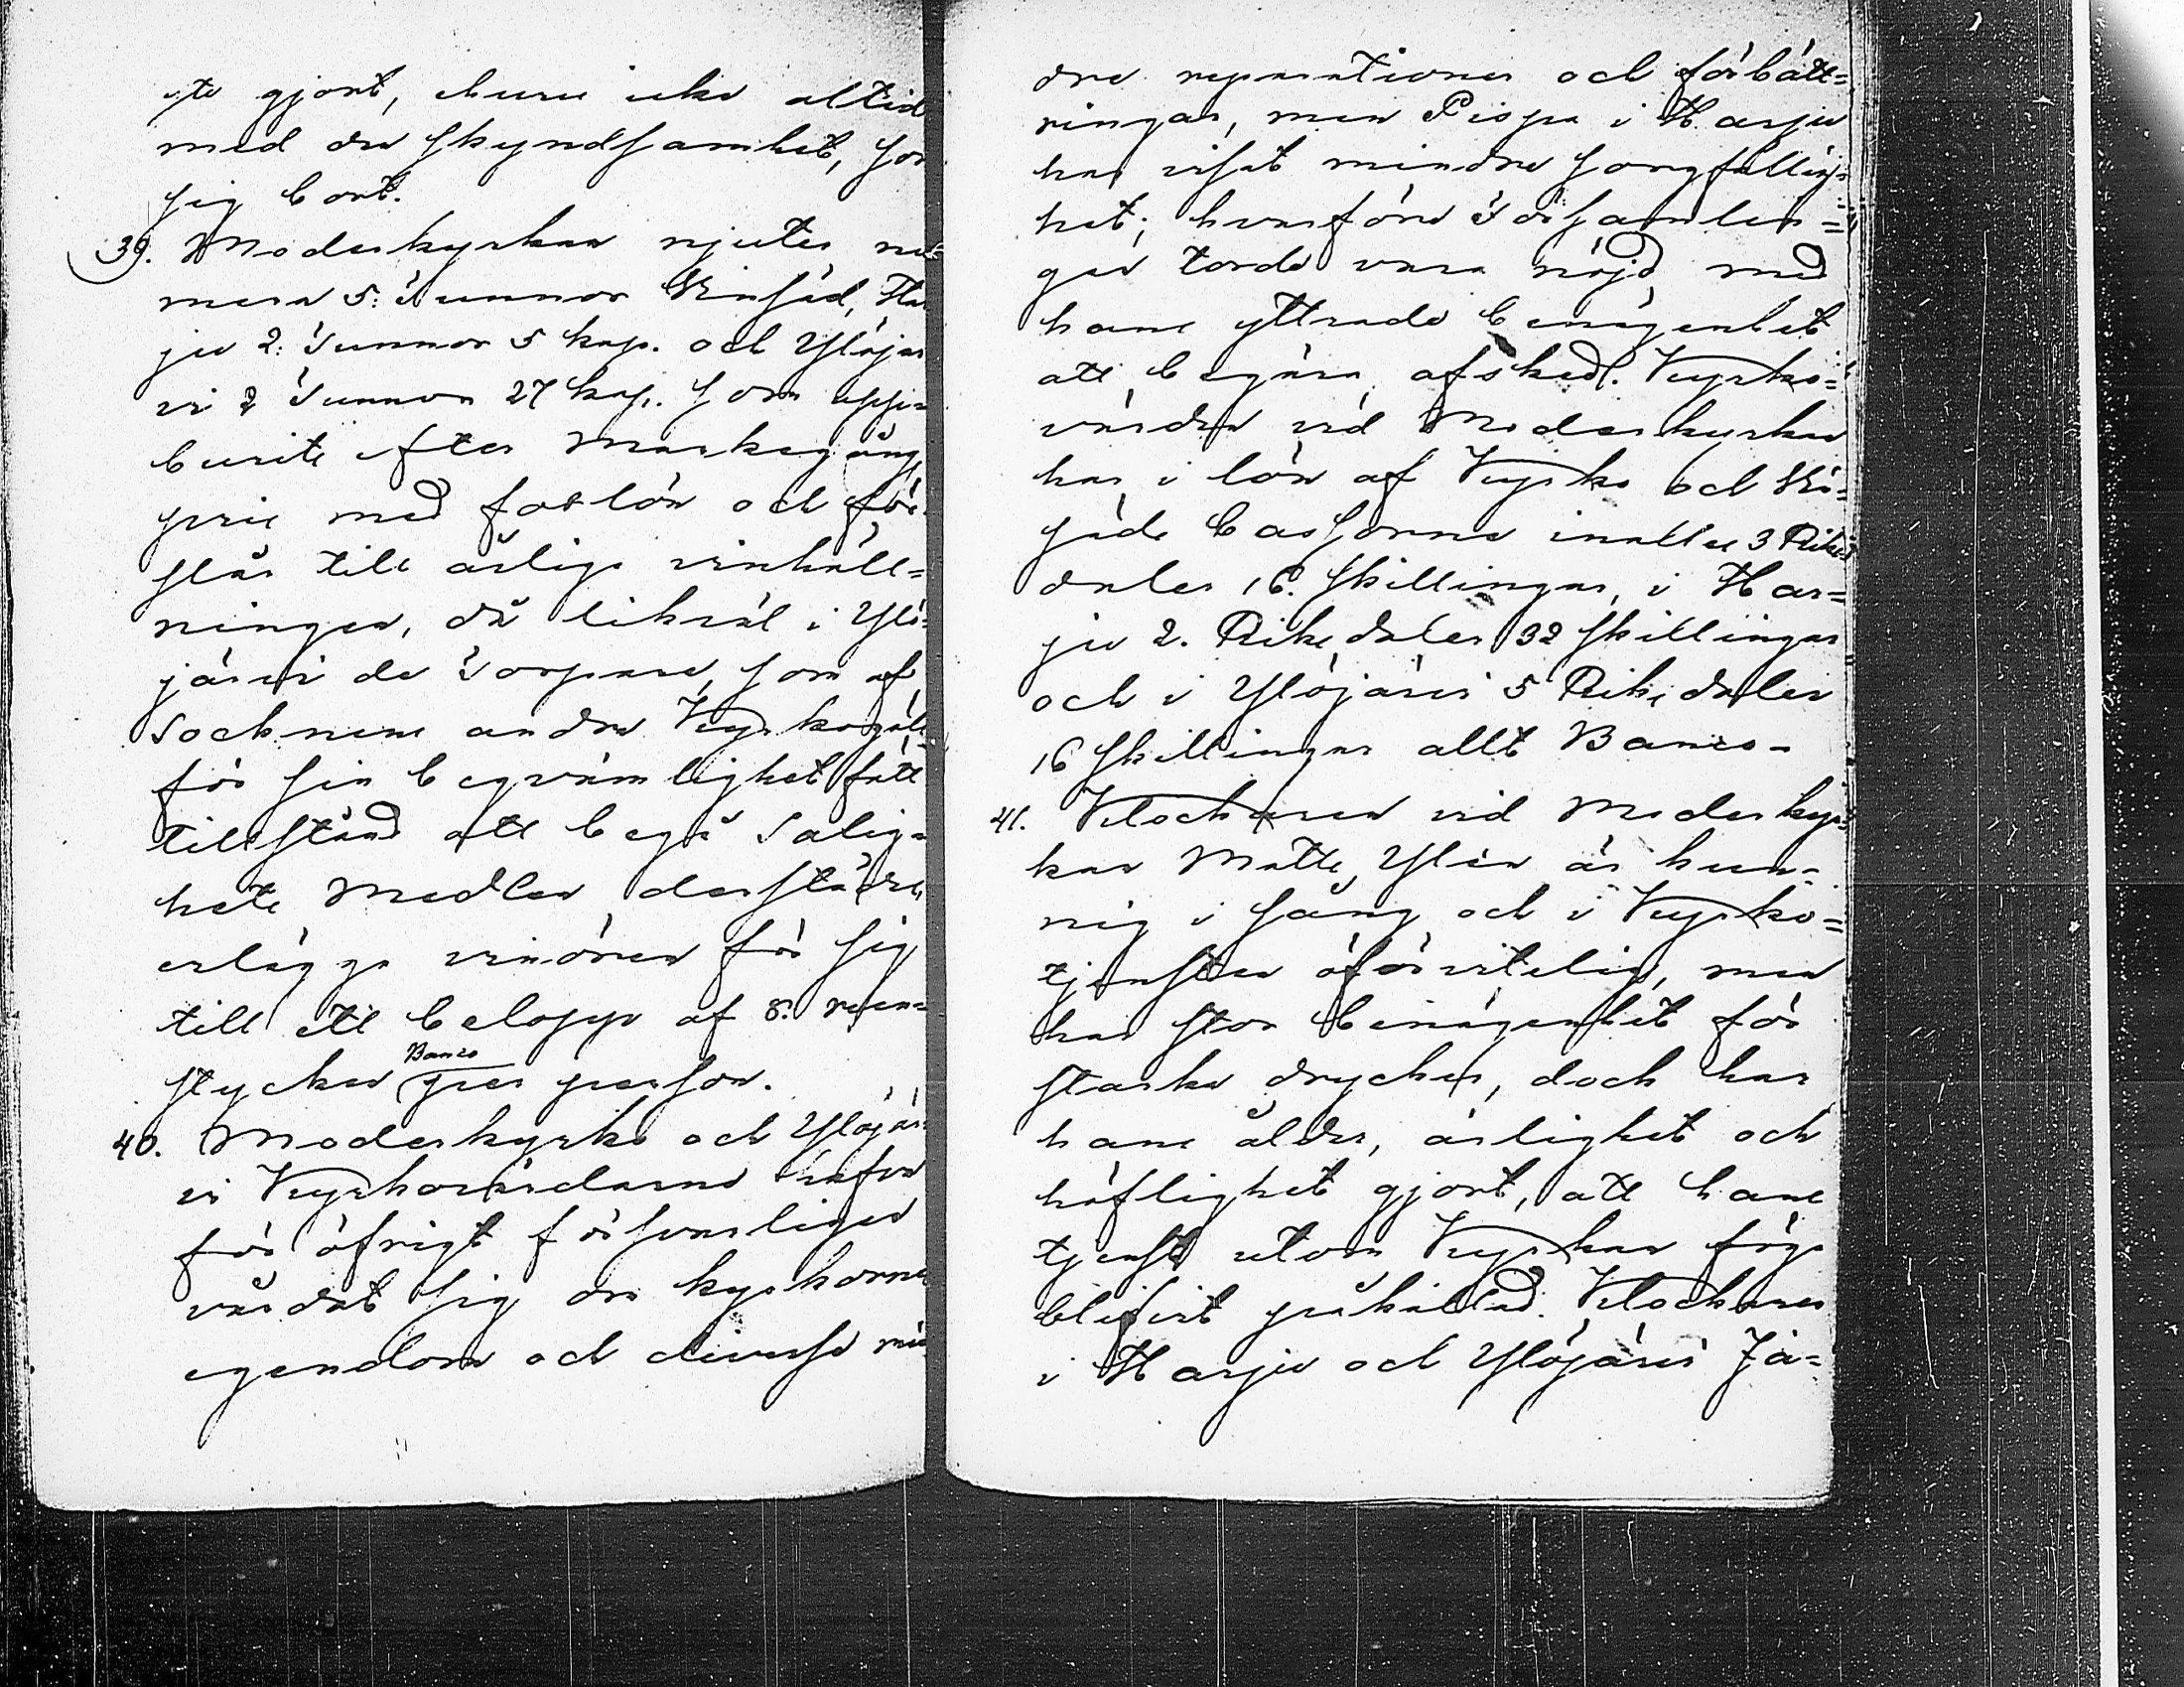 ste gjort, ehuru icke alltid
med den skyndsamhet, som
sig bort.
39. Moderkyrkan njuter nu=
mera 5: Tunnor Vinsäd, Har
ju 2: Tunnor 5 kap. och Ylöjär
vi 2 Tunnor 27 kap. som upp=
burits efter Markegång
pris med forlön och för
slår till årliga vinhåll=
ningen, då likväl i Ylö=
järvi de Torpare, som af
Socknens andra Kyrkogäll
för sin beqvämlighet fått
tillstånd att begå Salig=
hets Medlen derstädes
erlägga vinören för sig
till ett belopp af 8. run=
stycken Banco per person.
40. Moderkyrko och Ylöjär
vi Kyrkovärdarne hafva
för öfrigt försvarligen
vårdat sig om kyrkornas
egendom och diverse min
dre reparationer och förbätt=
ringar, men Pispa i Harju
har visat mindre sorgfällig=
het; hvarföre Församlin=
gen torde vara nöjd med
hans yttrade benägenhet
att begära afsked. Kyrko=
värden vid Moderkyrkan
har i lön af Kyrko och Vin
säds Cassorna inalles 3 Riks
daler 16. skillingar, i Har=
ju 2. Riksdaler 32 skillingar
och i Ylöjärvi 5 Riksdaler
16 skillingar allt Banco.
41. Klockaren vid Moderkyr=
kan Matts Ylén är kun=
nig i sång och i Kyrko=
tjensten oförvitelig, men
har stor benägenhet för
starka drycker, doch har
hans ålder, ärlighet och
höflighet gjort, att hans
tjenst utom Kyrkan föga
blifvit påkallad. Klockaren
i Harju och Ylöjärvi Ja=